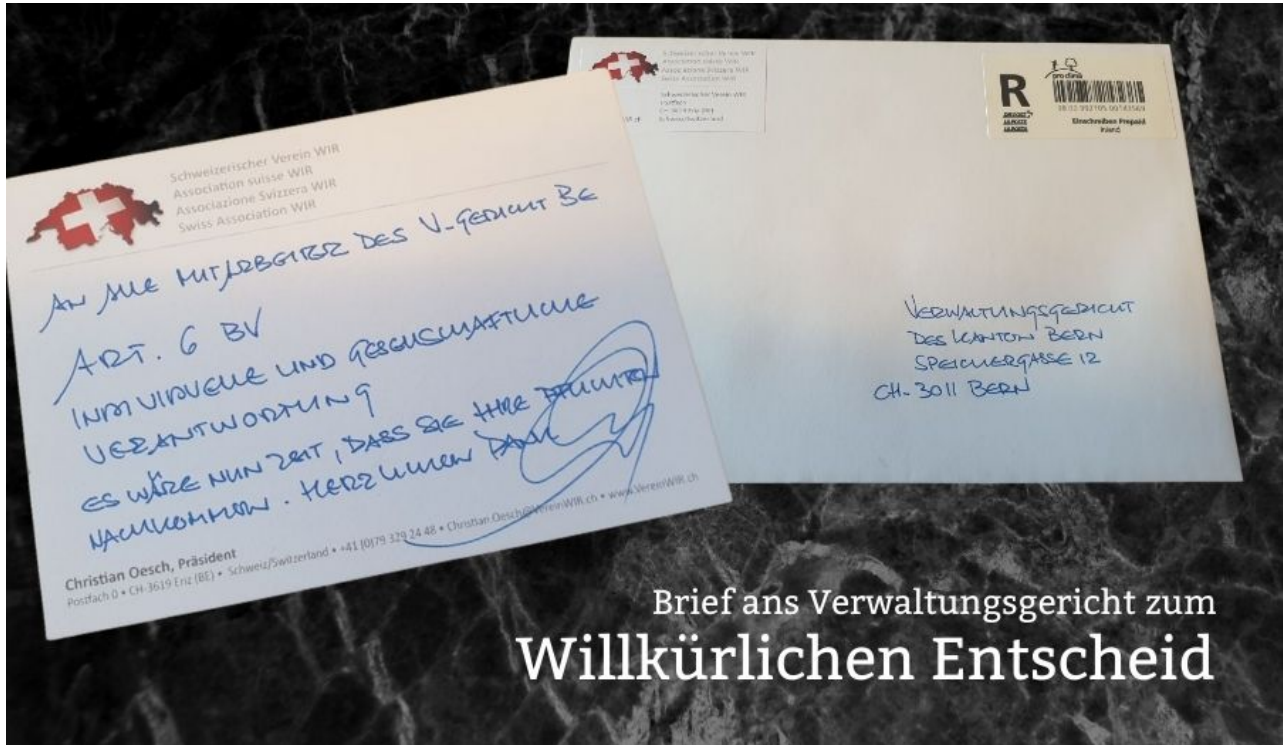 Schweizerischer Verein WIR
Association suisse WIR
Associazione Svizzera WIR
Swiss Association WIR
AN ALLE MITARBEITER DES V-GERICHT BE
ART. 6 BV
INDIVIDUELLE UND GESELLSCHAFTLICHE
VERANTWORTUNG
ES WÄRE NUN ZEIT, DASS SIE IHRE PFLICHTEN
NACHKOMMEN. HERZLICHEN DANK
Christian Oesch, Präsident
Postfach 0 • CH-3619 Eriz (BE) • Schweiz/Switzerland • +41 (0)79 329 24 48 • Christian.Oesch@VereinWIR.ch • www.VereinWIR.ch
Schweizerischer Verein WIR
Association suisse WIR
Associazione Svizzera WIR
Swiss Association WIR
Schweizerischer Verein WIR
Postfach
Schweiz/Switzerland
R
pro clima
DIE POST
LA POSTE
LA POSTA
Einschreiben Prepaid
Inland
VERWALTUNGSGERICHT
DES KANTON BERN
SPEICHERGASSE 12
CH-3011 BERN
Brief ans Verwaltungsgericht zum
Willkürlichen Entscheid